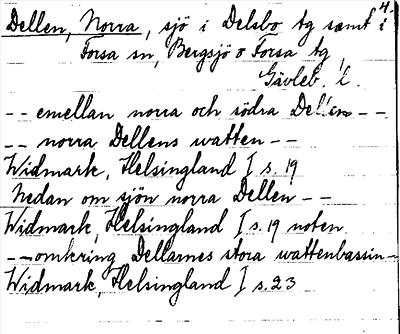 4.
Dellen, Norra, sjö i Delsbo tg samt i
Forsa sn, Bergsjö o Forsa tg,
Gävleb. l.
-- emellan norra och södra Dellen --
-- norra Dellens watten --
Widmark, Helsingland I s. 19
Nedan om sjön norra Dellen --
Widmark, Helsingland I s. 19 noten.
-- omkring Dellarnes stora wattenbassin --
Widmark, Helsingland I s. 23